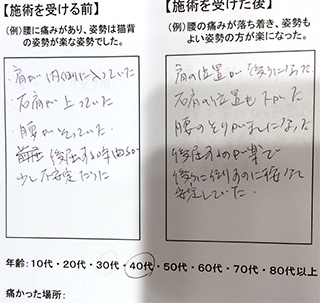 【施術を受ける前】
(例)腰に痛みがあり、姿勢は猫背
の姿勢が楽な姿勢でした。
・肩が内側に入っていた
・右肩が上っていた
・腰がそっていた
・後屈する時
少し不安定だった
【施術を受けた後】
(例)腰の痛みが落ち着き、姿勢も
よい姿勢の方が楽になった。
肩の位置が後ろになった
右肩の位置も下がった
腰のそりがましになった
後屈するのが楽で
後ろに倒すのに
安定していた。
年齢:10代・20代・30代・40代・50代・60代・70代・80代以上
痛かった場所: